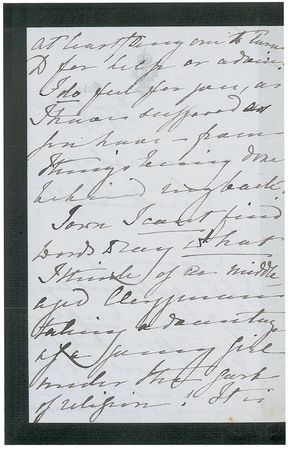 at least thing one to turn
to for help or advice.
I do feel for you, as
I have suffered as
you have - from
things being done
behind my back.
I own I can't find
words to say what
I think of a middle
aged Clergyman
taking advantage
of a young girl
under the garb
of religion! It is